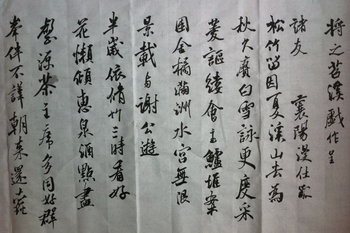 將之苕溪戲作呈
諸友 襄陽漫仕黻
松竹留因夏溪山去為
秋久賡白雪詠更度采
菱謳縷會玉鱸堆案
團金橘滿洲水宮無限
景載与謝公遊
半歲依脩竹三時看好
花懶傾惠泉酒點盡
壑源茶主席多同好群
峯伴不譁朝來還蠹